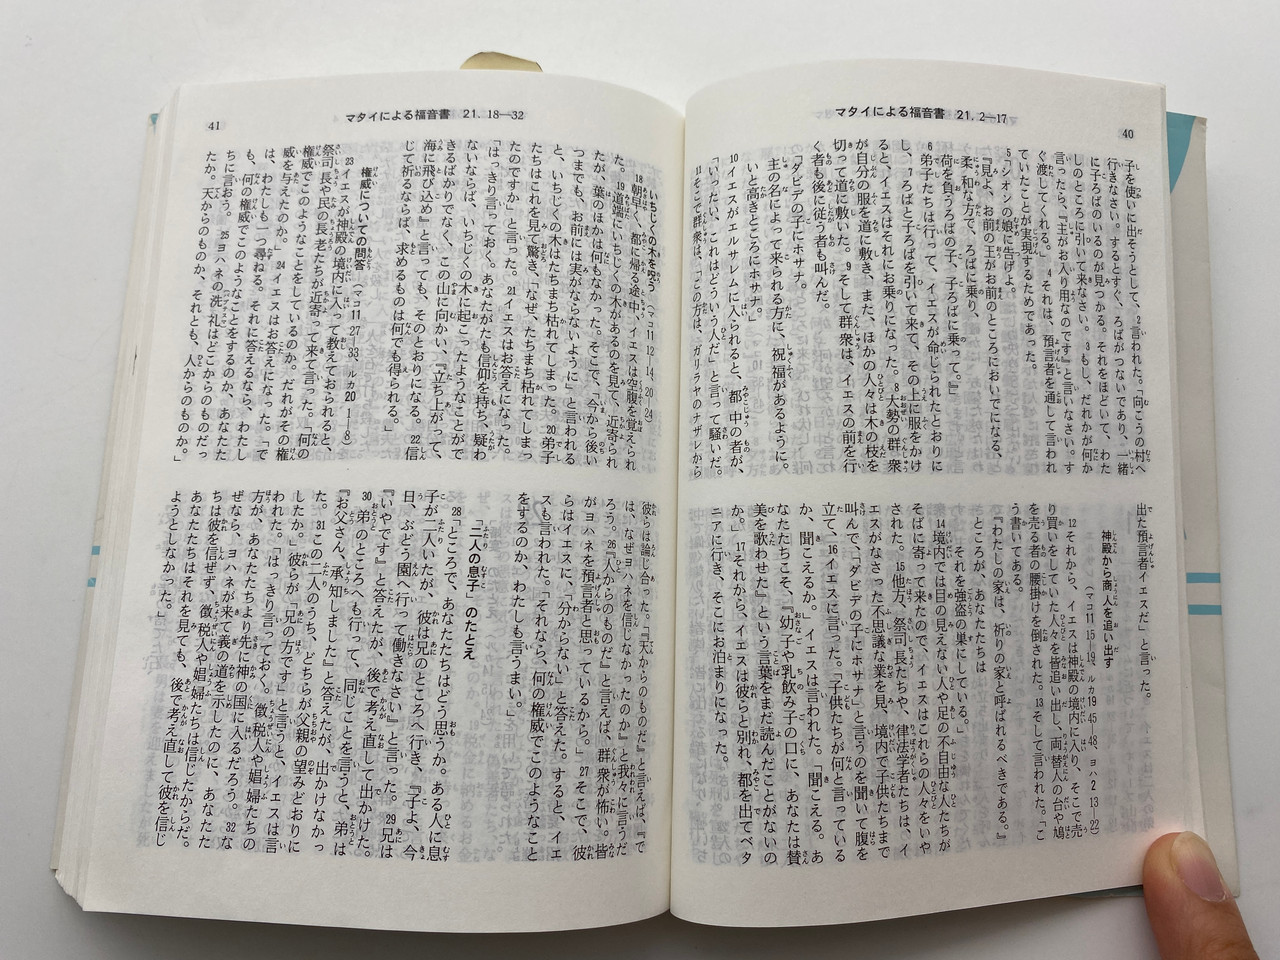 マタイによる福音書 21. 2—17
40
子を使いに出そうとして、2言われた。「向こうの村へ
行きなさい。するとすぐ、ろばがつないであり、一緒
に子ろばのいるのが見つかる。それをほどいて、わた
しのところに引いて来なさい。3もし、だれかが何か
言ったら、『主がお入り用なのです』と言いなさい。す
ぐ渡してくれる。」4それは、預言者を通して言われ
ていたことが実現するためであった。
5「シオンの娘に告げよ。
『見よ、お前の王がお前のところにおいでになる、
柔和な方で、ろばに乗り、
荷を負うろばの子、子ろばに乗って。』」
6弟子たちは行って、イエスが命じられたとおりに
し、7ろばと子ろばを引いて来て、その上に服をかけ
ると、イエスはそれにお乗りになった。8大勢の群衆
が自分の服を道に敷き、また、ほかの人々は木の枝を
切って道に敷いた。9そして群衆は、イエスの前を行
く者も後に従う者も叫んだ。
「ダビデの子にホサナ。
主の名によって来られる方に、祝福があるように。
いと高きところにホサナ。」
10イエスがエルサレムに入られると、都中の者が、
「いったい、これはどういう人だ」と言って騒いだ。
11そこで群衆は、「この方は、ガリラヤのナザレから
出た預言者イエスだ」と言った。
神殿から商人を追い出す
（マコ11 15—19、ルカ19 45—48、ヨハ2 13—22）
12それから、イエスは神殿の境内に入り、そこで売
り買いをしていた人々を皆追い出し、両替人の台や鳩
を売る者の腰掛けを倒された。13そして言われた。「こ
う書いてある。
『わたしの家は、祈りの家と呼ばれるべきである。』
ところが、あなたたちは
それを強盗の巣にしている。」
14境内では目の見えない人や足の不自由な人たちが
そばに寄って来たので、イエスはこれらの人々をいや
された。15他方、祭司長たちや、律法学者たちは、イ
エスがなさった不思議な業を見、境内で子供たちまで
叫んで、「ダビデの子にホサナ」と言うのを聞いて腹を
立て、16イエスに言った。「子供たちが何と言っている
か、聞こえるか。」イエスは言われた。「聞こえる。あ
なたたちこそ、『幼子や乳飲み子の口に、あなたは賛
美を歌わせた』という言葉をまだ読んだことがないの
か。」17それから、イエスは彼らと別れ、都を出てベタ
ニアに行き、そこにお泊まりになった。
マタイによる福音書 21. 18—32
41
いちじくの木を呪う
（マコ11 12—14、20—24）
18朝早く、都に帰る途中、イエスは空腹を覚えられ
た。19道端にいちじくの木があるのを見て、近寄られ
たが、葉のほかは何もなかった。そこで、「今から後い
つまでも、お前には実がならないように」と言われる
と、いちじくの木はたちまち枯れてしまった。20弟子
たちはこれを見て驚き、「なぜ、たちまち枯れてしまっ
たのですか」と言った。21イエスはお答えになった。
「はっきり言っておく。あなたがたも信仰を持ち、疑わ
ないならば、いちじくの木に起こったようなことがで
きるばかりでなく、この山に向かい、『立ち上がって、
海に飛び込め』と言っても、そのとおりになる。22信
じて祈るならば、求めるものは何でも得られる。」
権威についての問答
（マコ11 27—33、ルカ20 1—8）
23イエスが神殿の境内に入って教えておられると、
祭司長や民の長老たちが近寄って来て言った。「何の
権威でこのようなことをしているのか。だれがその権
威を与えたのか。」24イエスはお答えになった。「で
は、わたしも一つ尋ねる。それに答えるなら、わたし
も、何の権威でこのようなことをするのか、あなたた
ちに言おう。25ヨハネの洗礼はどこからのものだっ
たか。天からのものか、それとも、人からのものか。」
彼らは論じ合った。「『天からのものだ』と言えば、『で
は、なぜヨハネを信じなかったのか』と我々に言うだ
ろう。26『人からのものだ』と言えば、群衆が怖い。皆
がヨハネを預言者と思っているから。」27そこで、彼
らはイエスに、「分からない」と答えた。すると、イエ
スも言われた。「それなら、何の権威でこのようなこと
をするのか、わたしも言うまい。」
「二人の息子」のたとえ
28「ところで、あなたたちはどう思うか。ある人に息
子が二人いたが、彼は兄のところへ行き、『子よ、今
日、ぶどう園へ行って働きなさい』と言った。29兄は
『いやです』と答えたが、後で考え直して出かけた。
30弟のところへも行って、同じことを言うと、弟は
『お父さん、承知しました』と答えたが、出かけなかっ
た。31この二人のうち、どちらが父親の望みどおりに
したか。」彼らが「兄の方です」と言うと、イエスは言
われた。「はっきり言っておく。徴税人や娼婦たちの
方が、あなたたちより先に神の国に入るだろう。32な
ぜなら、ヨハネが来て義の道を示したのに、あなたた
ちは彼を信ぜず、徴税人や娼婦たちは信じたからだ。
あなたたちはそれを見ても、後で考え直して彼を信じ
ようとしなかった。」